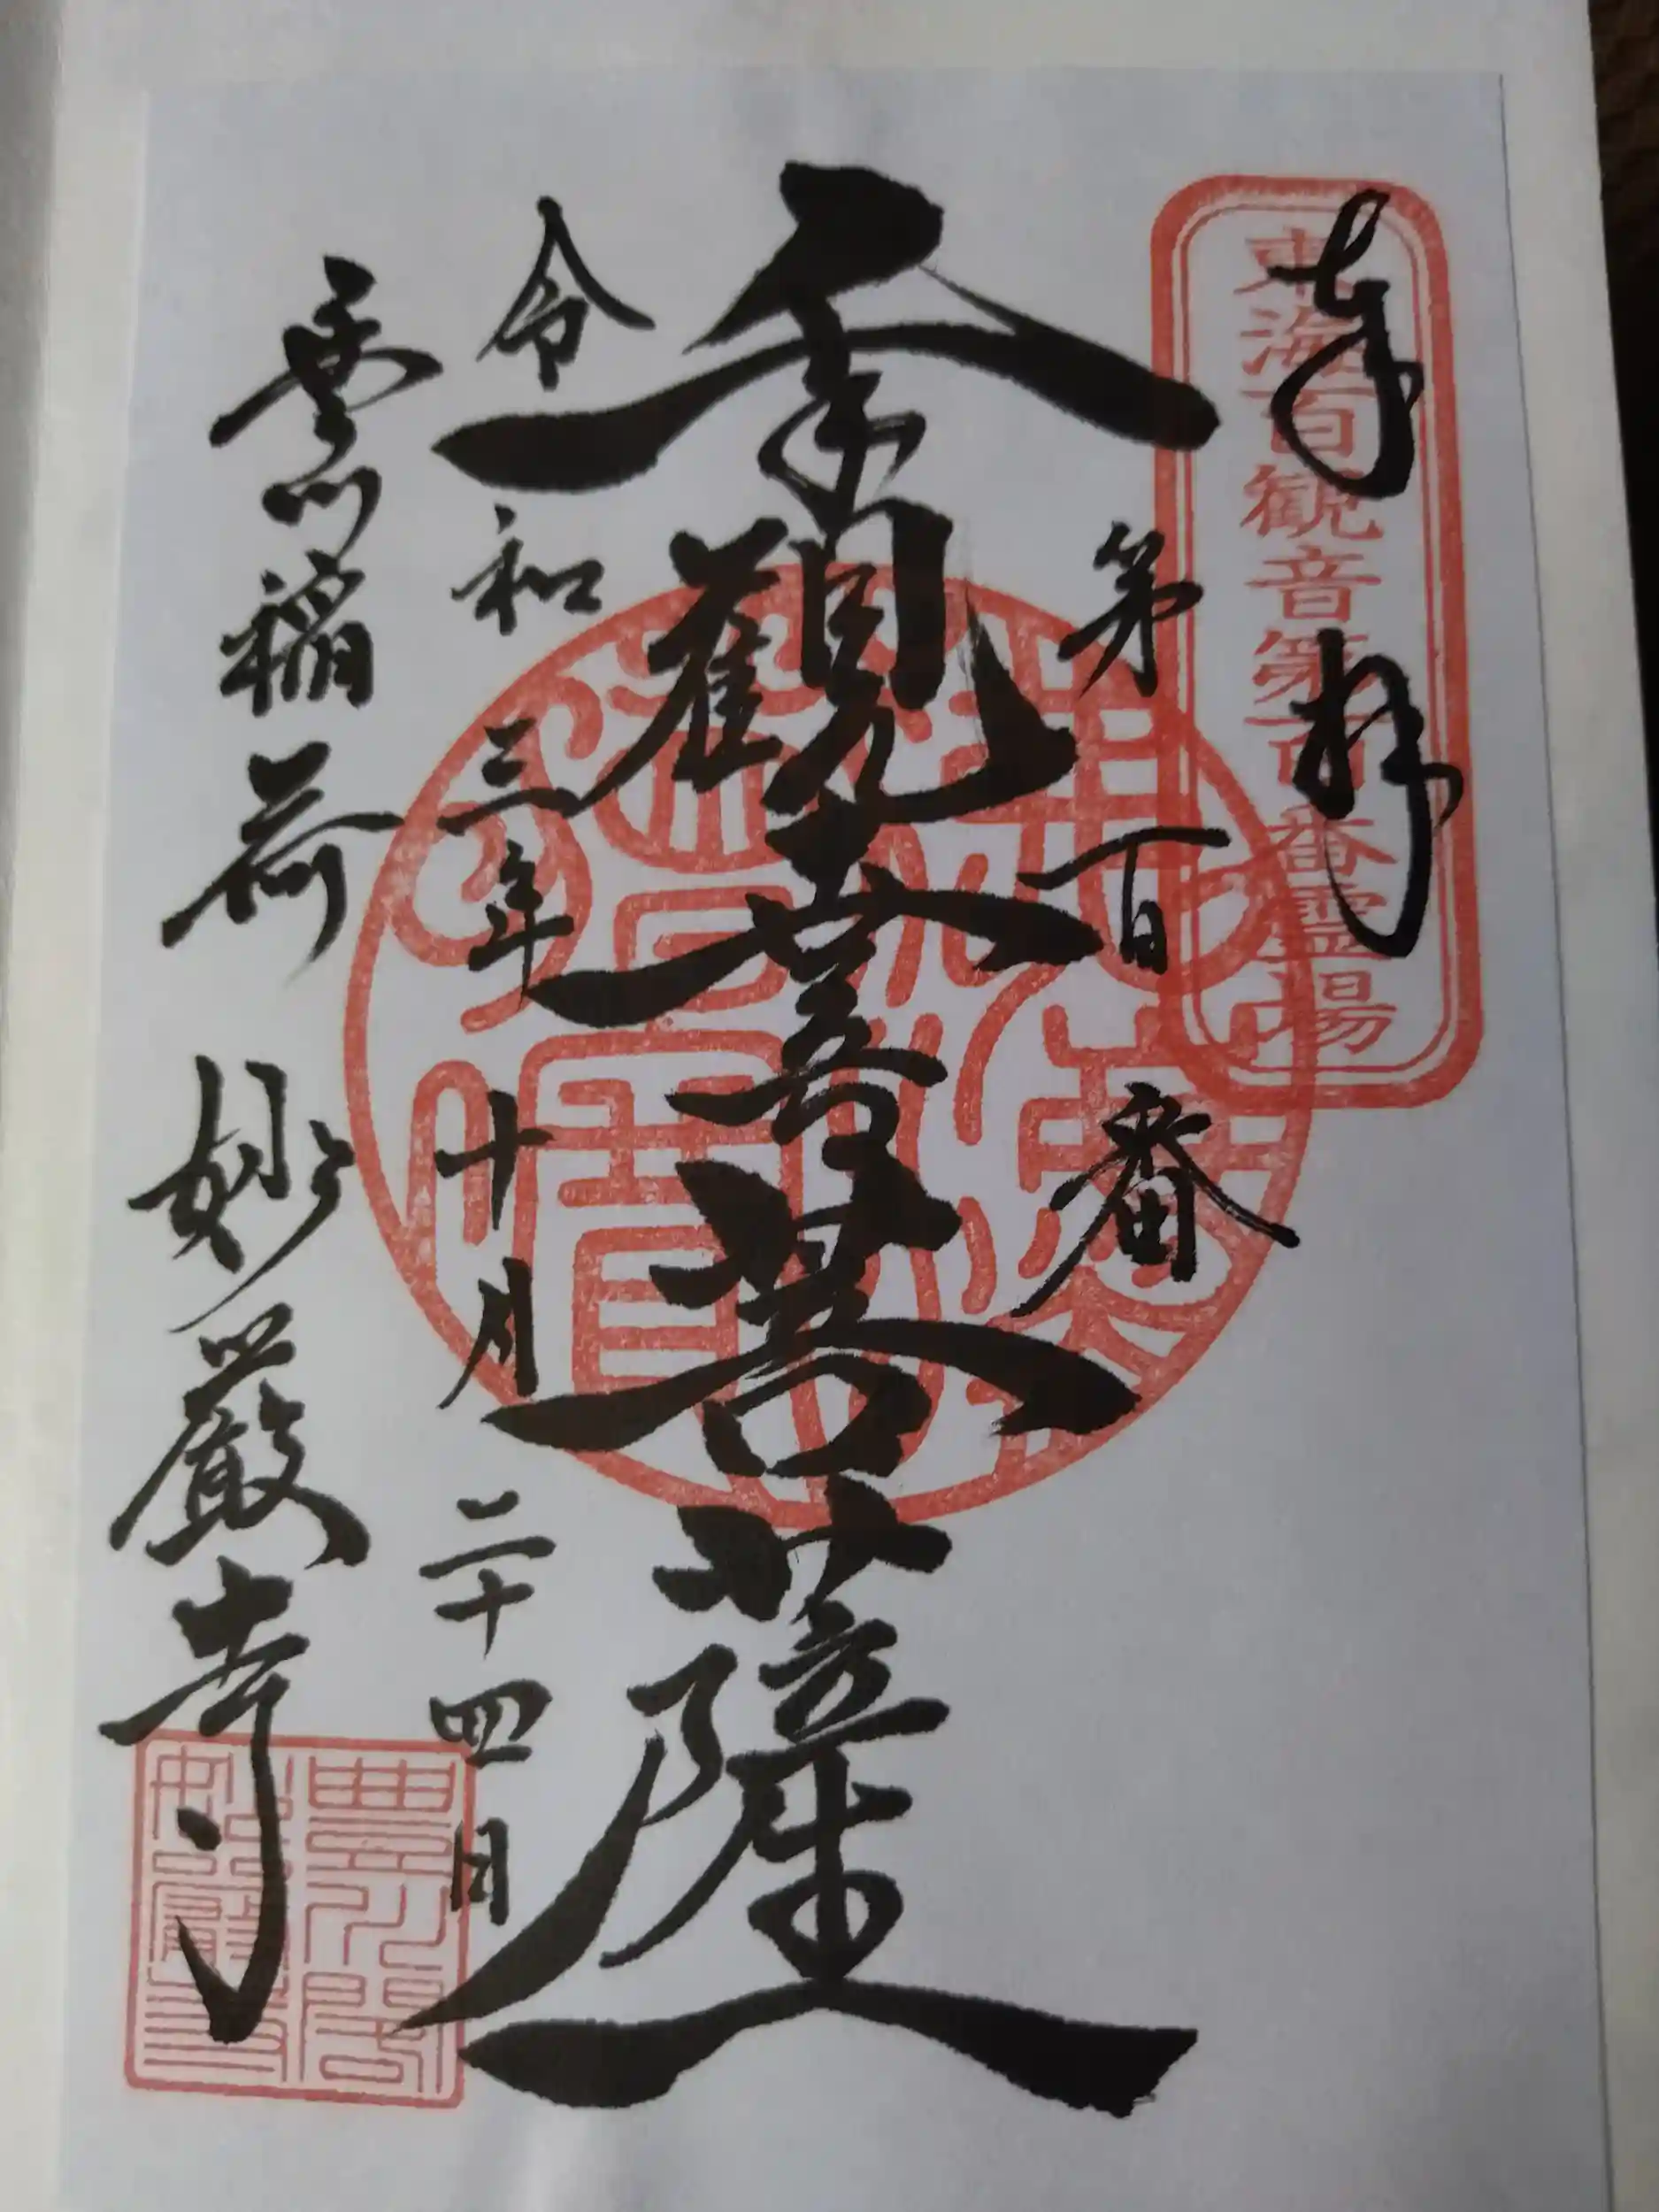 奉拝
東海百観音第百番霊場
第百番
千手観世音菩薩
令和三年十月二十四日
豊川稲荷 妙厳寺
豊川閣
妙嚴寺